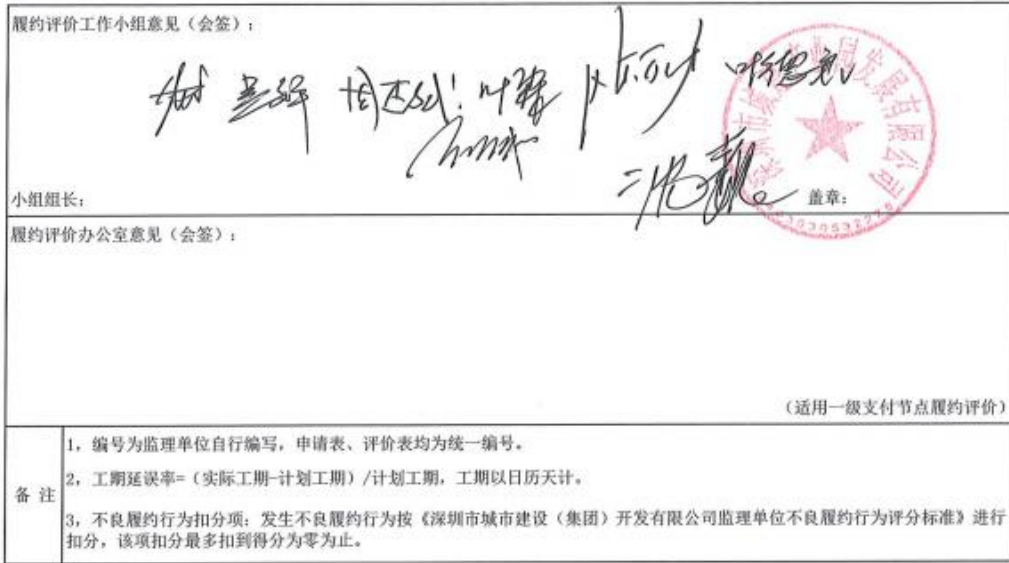 履约评价工作小组意见（会签）：
小组组长：
盖章：
履约评价办公室意见（会签）：
（适用一级支付节点履约评价）
备 注
1，编号为监理单位自行编写，申请表、评价表均为统一编号。
2，工期延误率=（实际工期-计划工期）/计划工期，工期以日历天计。
3，不良履约行为扣分项：发生不良履约行为按《深圳市城市建设（集团）开发有限公司监理单位不良履约行为评分标准》进行
扣分，该项扣分最多扣到得分为零为止。